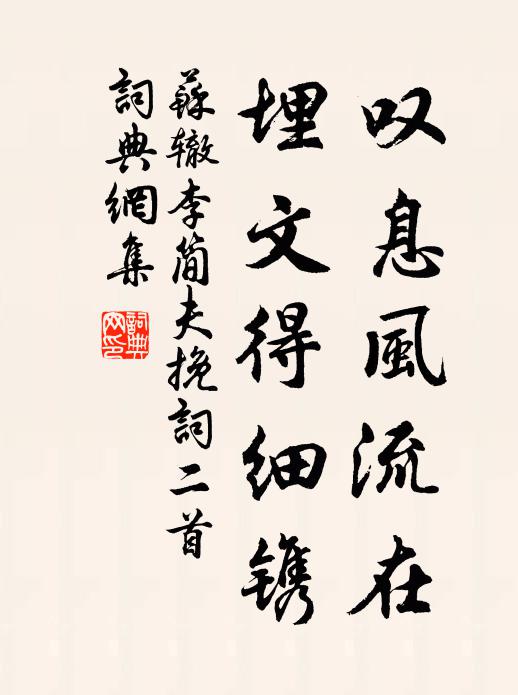 叹息風流在
埋文得细镌
蘇辙李简夫挽詞二首
詞典網集
詞典网印